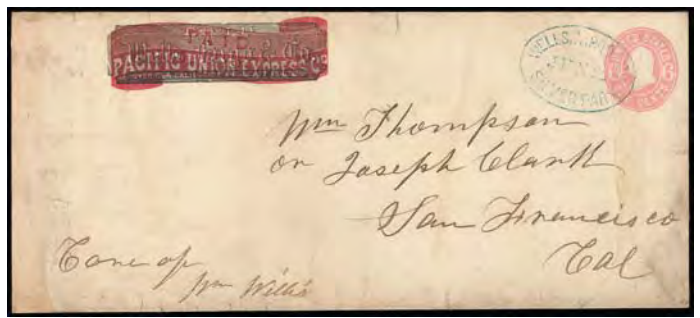 PAID
PACIFIC UNION EXPRESS Co
WELLS, FARGO
SILVER PARK
6 6
CENTS
Wm Thompson
or Joseph Clark
San Francisco
Cal
Care of
Wm Wills